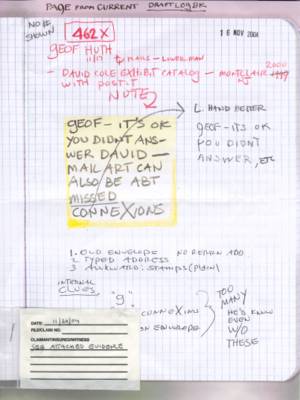 PAGE FROM CURRENT DRAFTLOGBK
NONE SHOWN
16 NOV 2004
462X
GEOF HUTH
11/17
MAILS -
- DAVID COLE EXHIBIT CATALOG - MONTCLAIR 2000
WITH POST-IT
NOTE
L. HAND BETTER
GEOF - IT'S OK
YOU DIDNT ANS-
WER DAVID -
MAIL ART CAN
ALSO BE ABT
MISSED
CONNEXIONS
GEOF - ITS OK
YOU DIDNT
ANSWER, ETC
1. OLD ENVELOPE NO RETURN ADD
2 TYPED ADDRESS
3 AWKWARD: STAMPS (PLAIN)
INTERNAL
CLUES
"9"
CONNEXIONS
ON ENVELOPE
TOO
MANY
HE'D KNOW
EVEN
W/O
THESE
DATE: 11/20/04
FILE/CLAIM NO.
CLAIMANT/INSURED/WITNESS
SEE ATTACHED EVIDENCE